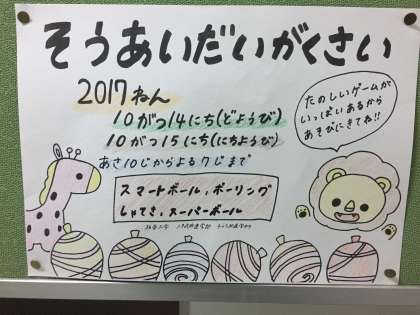 そうあいだいがくさい
2017ねん
10がつ14にち(どようび)
10がつ15にち(にちようび)
あさ10じからよる7じまで
たのしいゲームが
いっぱいあるから
あそびにきてね!!
スマートボール、ボーリング
しゃてき、スーパーボール